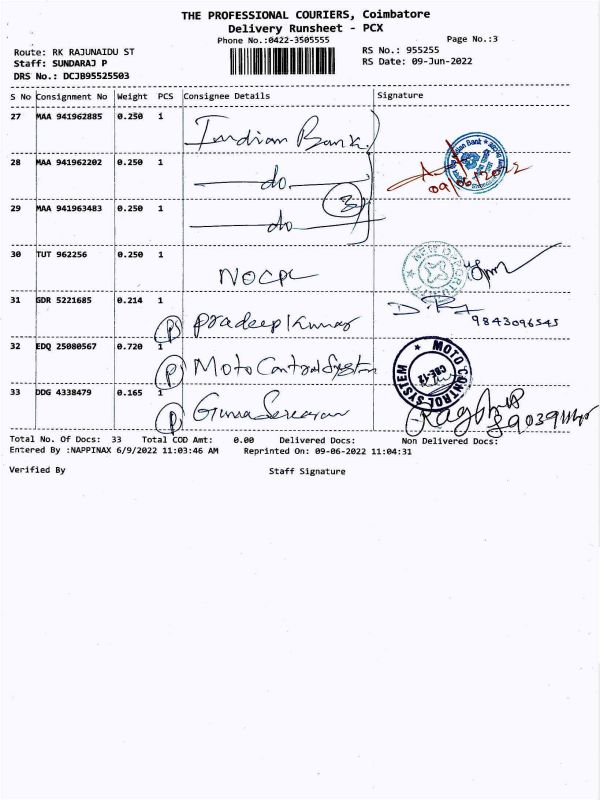 THE PROFESSIONAL COURIERS, Coimbatore
Delivery Runsheet - PCX
Phone No.:0422-3505555
Page No.:3
Route: RK RAJUNAIDU ST
RS No.: 955255
Staff: SUNDARAJ P
RS Date: 09-Jun-2022
DRS No.: DCJB95525503
S No Consignment No Weight PCS Consignee Details Signature
27 MAA 941962885 0.250 1 Indian Bank
28 MAA 941962202 0.250 1 do 09/06/2022
3
29 MAA 941963483 0.250 1 do
30 TUT 962256 0.250 1 NOCPL
31 GDR 5221685 0.214 1 P Pradeep Kumar 9843096545
32 EDQ 25080567 0.720 1 P Moto Control System MOTO CONTROL SYSTEM CBE-12
33 DDG 4338479 0.165 1 P Guna Raghu
Total No. Of Docs: 33 Total COD Amt: 0.00 Delivered Docs: Non Delivered Docs:
Entered By :NAPPINAX 6/9/2022 11:03:46 AM Reprinted On: 09-06-2022 11:04:31
Verified By Staff Signature